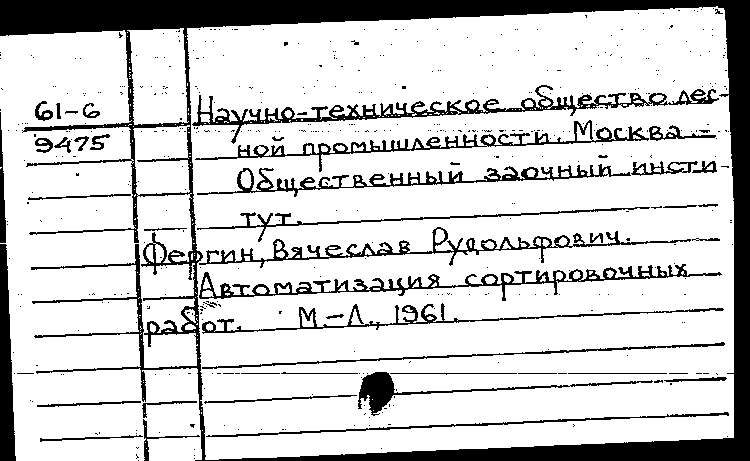 61-6 Научно-техническое общество лес-
9475 ной промышленности. Москва.-
Общественный заочный инсти
тут.
Фергин, Вячеслав Рудольфович.
Автоматизация сортировочных
работ. М.-Л., 1961.